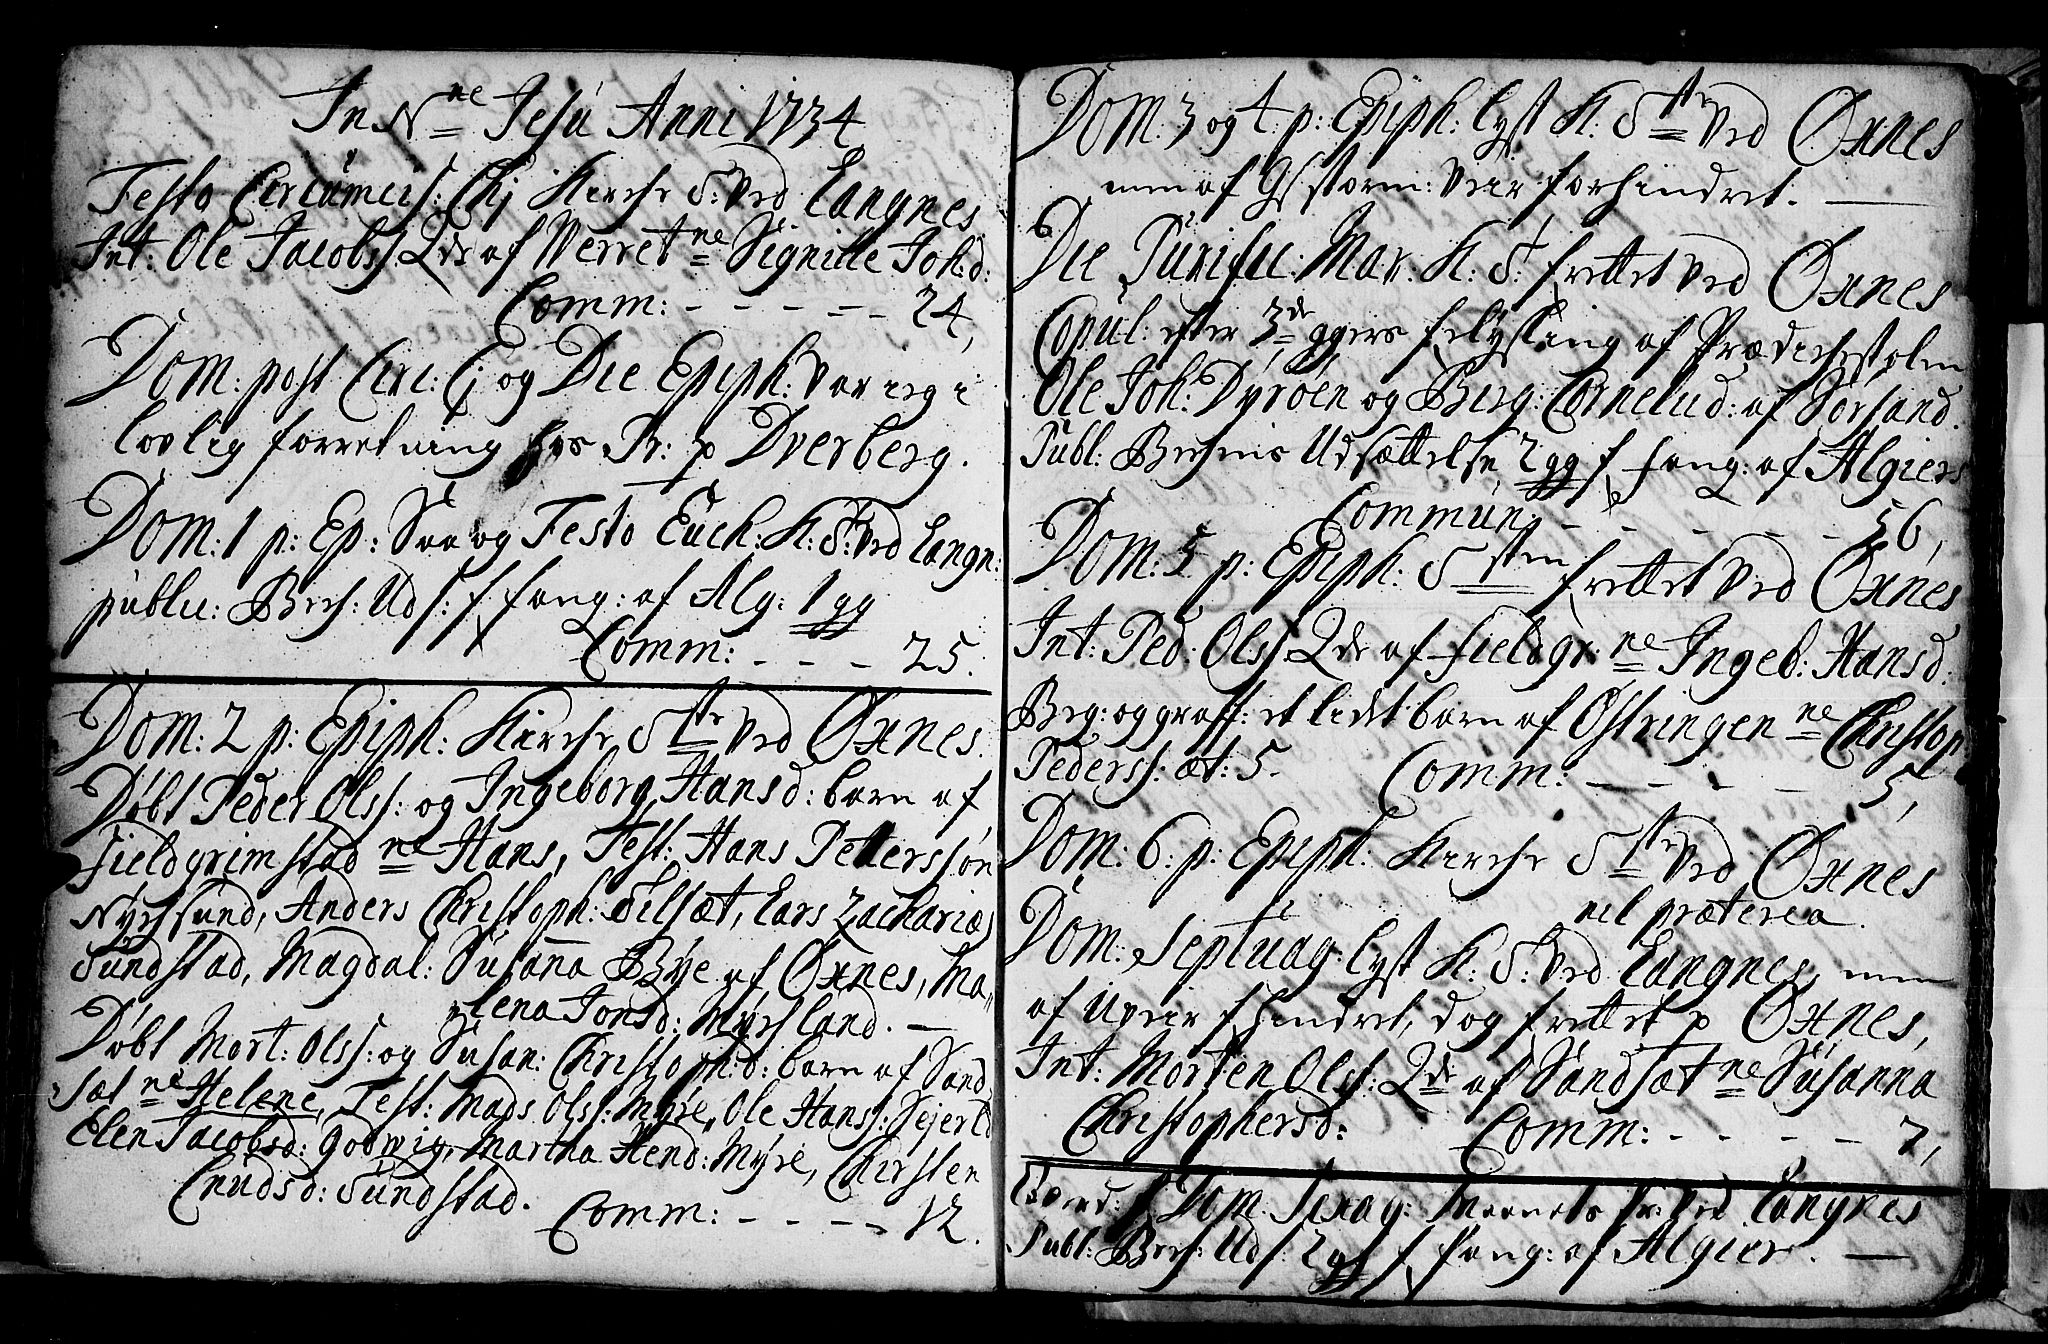 In Nne Jesu Anni 1734
Festo Circumcis: Chj Kirche S: ved Langnes
Int: Ole Jacobss: Qde af Werret ne Signille Joh:d:
Comm: - - - - - 24,
Dom: post Circ: Cj og Die Epiph: var ieg i
lovlig forretning hos Pr: p Dverberg.
Dom: 1 p: Ep: Saa og Festo Euch: K: S: ved Langn:
publu: Bech: Uds: f fang: af Alg: 1 gg
Comm: - - - 25.
Dom: 2 p: Epiph: Kirche Ste ved Øxnes.
Døbt Peder Olss: og Ingeborg Hansd: barn af
Fieldgrimstad ne Hans, Test: Hans Peterssøn
Nychsund, Anders Christoph: Tilsæt, Lars Zachariæs
Sundstad, Magdal: Susanna Bye af Øxnes, Ma-
lena Jonsd: Myhrland. —
Døbt Mort: Olss: og Susan: Christoph:d: barn af Sand
sæt ne Helene, Test: Mads Olss: Myre, Ole Hanss: Sejerld
Elen Jacobsd: Godwig, Martha Hend: Myre, Chirsten
Cnudsd: Sundstad. Comm: - - - - 12.
Dom: 3 og 4 p: Epiph: lyst K: Ste ved Øxnes
men af storm: veir forhindret. —
Die Purific: Mar: K: S: frettet ved Øxnes
Copul: efter 3de ggers felysling af Prædichestolen
Ole Joh: Dyrøen og Berg: Cornelud: af Sørsand.
Publ: Bechens Udsættelse 2 gg f fang: af Algiers
Commun: - - - - - - 56,
Dom: 5 p: Epiph: Sten frettet ved Øxnes
Int: Ped: Olss: Qde af Fieldgr: ne Ingeb: Hansd:
Beg: og graff: et lidet barn af Østringen ne Christop
Pederss: æt: 5. Comm: - - - - 5,
Dom: 6: p: Epiph: Kirche Ste ved Øxnes
nil præterea.
Dom: Septuag: lyst K: S: ved Langnes, men
af Uveir f hindret, dog frettet p Øxnes,
Int: Morten Olss: Qde af Sandsæt ne Susanna
Christophersd: Comm: - - - - 7,
f Dom: Sexag: ved Langnes
Publ: Bech: Uds: 2 gg f fang: af Algier. —